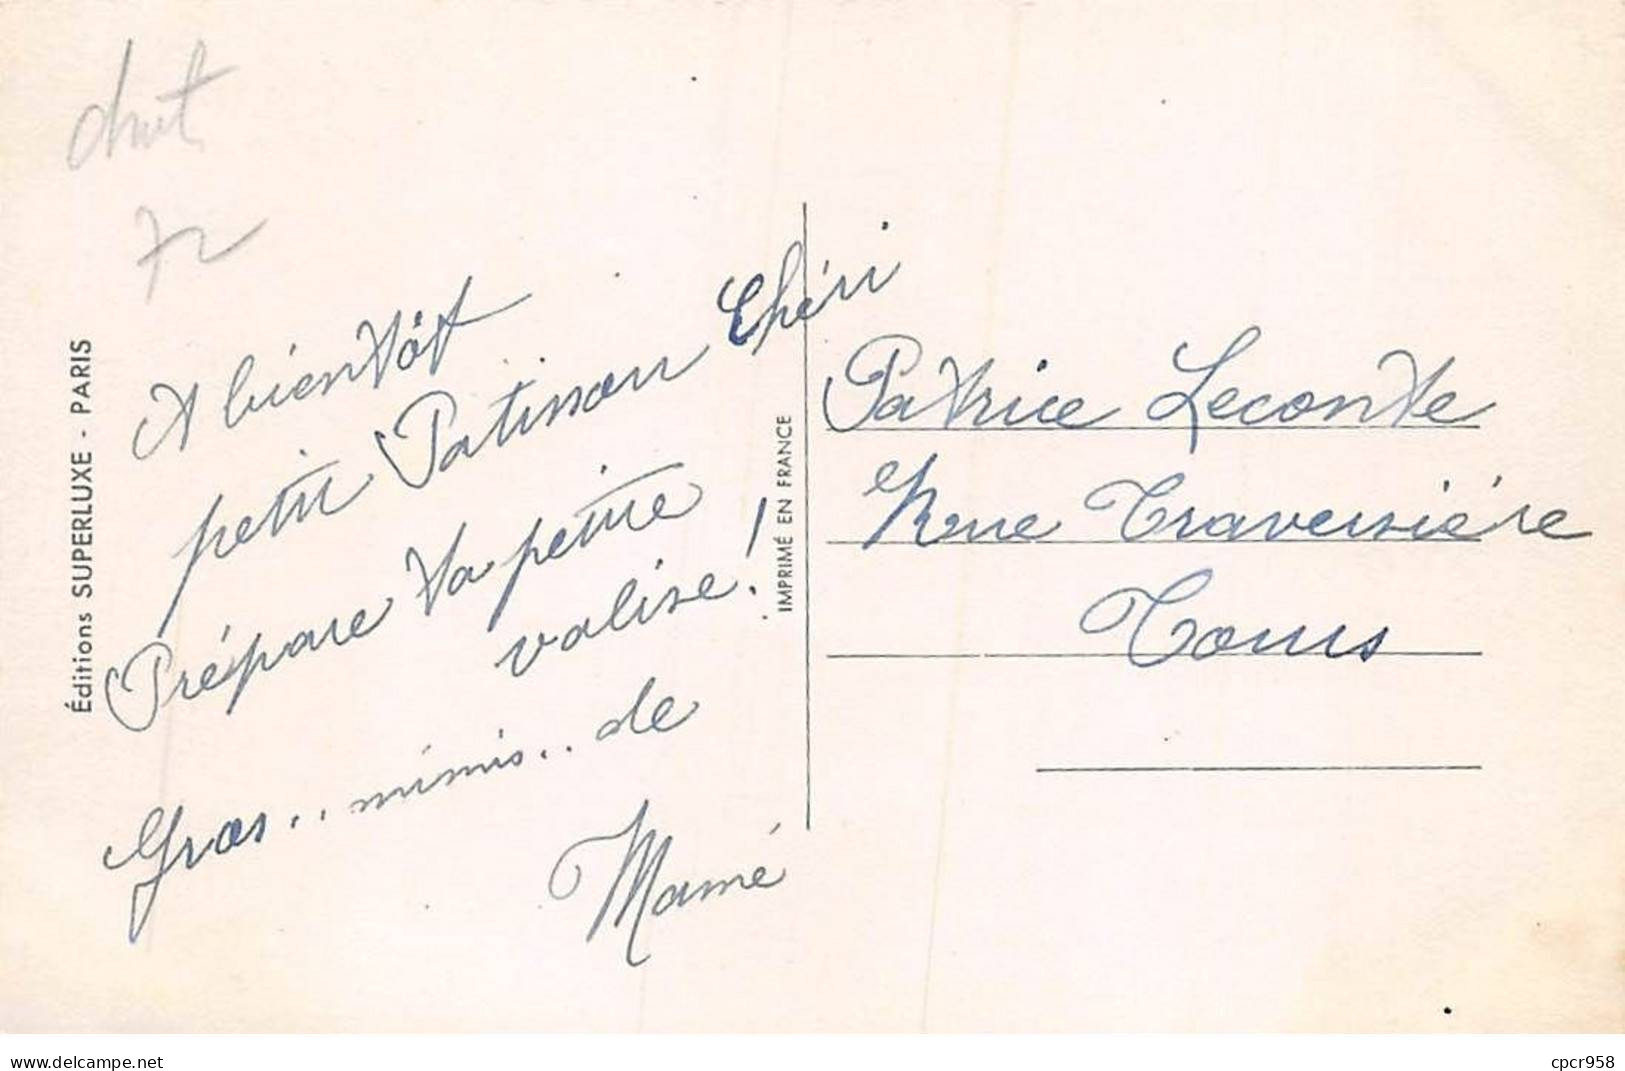 72
A bientôt
petit Patisson Chéri
Prépare ta petite
valise!
Gros.. mimis.. de
Mamé
Éditions SUPERLUXE - PARIS
IMPRIMÉ EN FRANCE
Patrice Leconte
Rue Traversière
Tours
delcampe.net
cpcr958